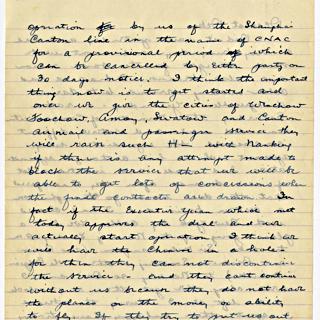 operation by us of the Shanghai
Canton line in the name of CNAC
for a provisional period of which
can be cancelled by either party on
30 days notice. I think the important
thing now is to get started and
once we give the cities of Wenchow
Foochow, Amoy, Swatow and Canton
air mail and passenger service they
will raise such H— with Nanking
if there is any attempt made to
block the service that we will be
able to get lots of concessions when
the final contracts are drawn. In
fact if the Executive Yuan which met
today approves the deal and we
actually start operation I think we
will have the Chinese in a hole
for then they can not discontinue
the service and they cant continue
without us because they do not have
the planes or the money or ability
to fly. If they try to put us out